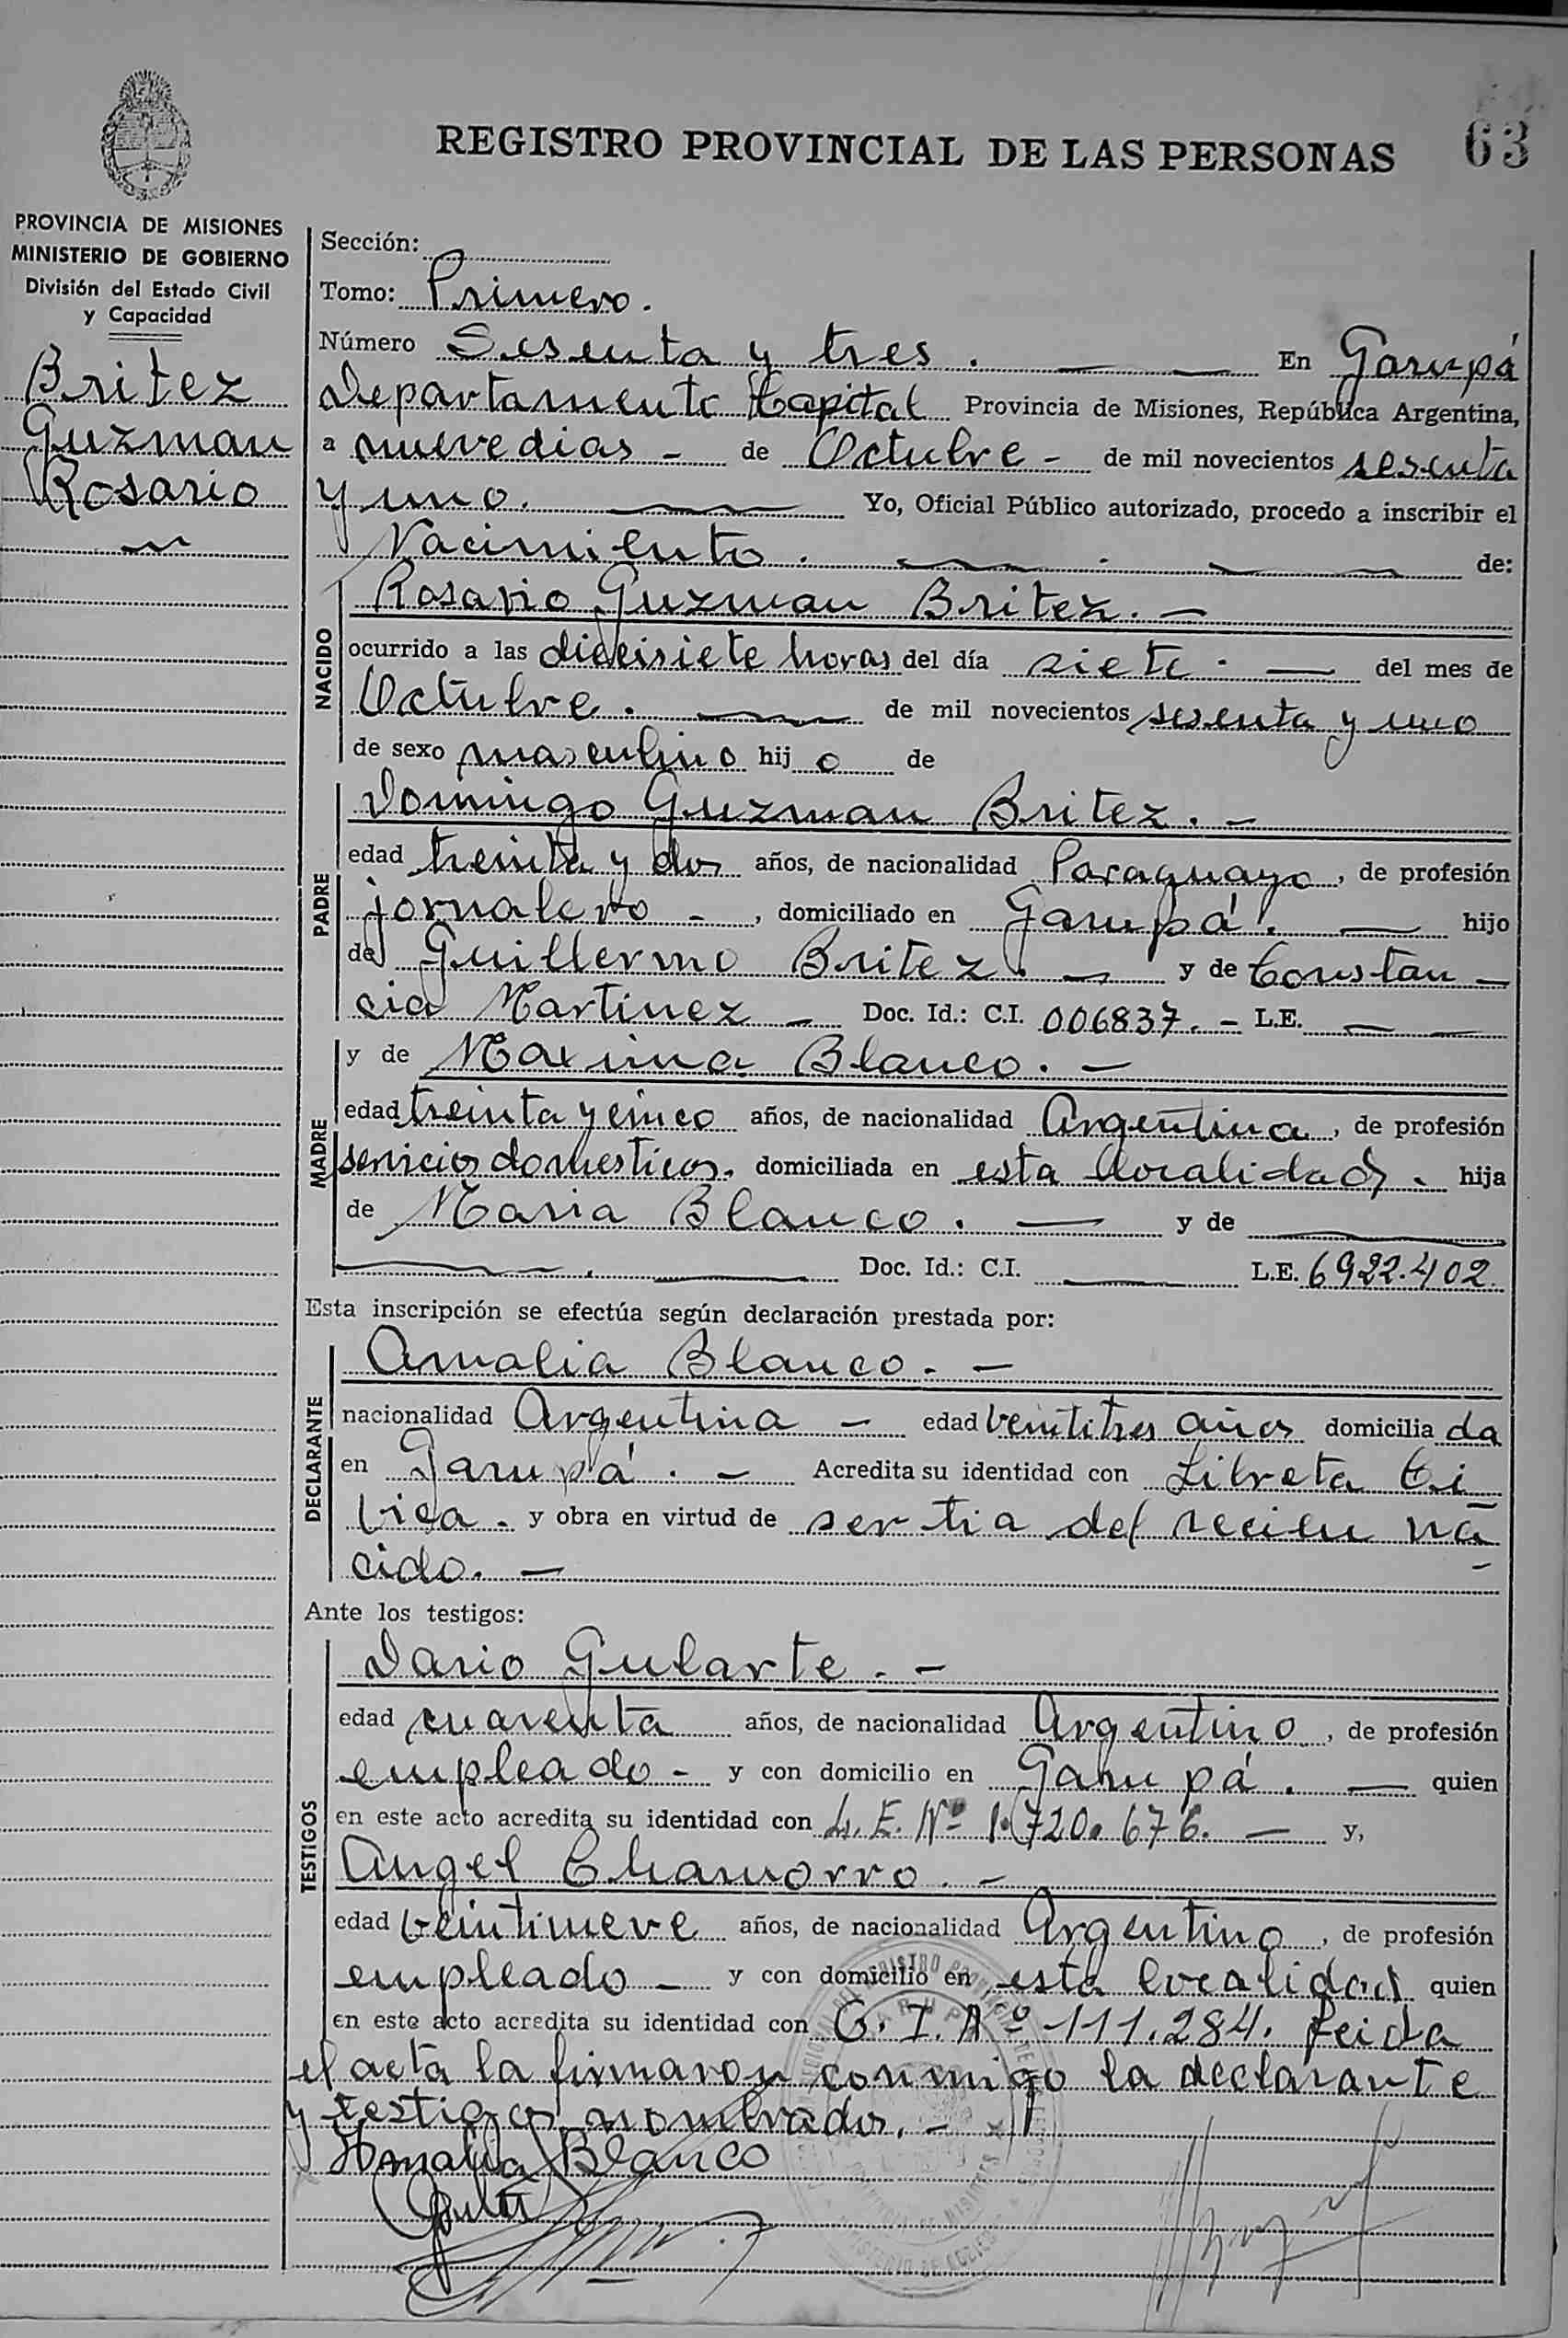 63
REGISTRO PROVINCIAL DE LAS PERSONAS
PROVINCIA DE MISIONES
MINISTERIO DE GOBIERNO
División del Estado Civil
y Capacidad
Britez
Guzman
Rosario
Sección:
Tomo: Primero.
Número Sesenta y tres. En Garupá
Departamento Capital Provincia de Misiones, República Argentina,
a nueve dias - de Octubre - de mil novecientos sesenta
y uno. Yo, Oficial Público autorizado, procedo a inscribir el
Nacimiento. de:
NACIDO
Rosario Guzman Britez. -
ocurrido a las diecisiete horas del día siete. - del mes de
Octubre. de mil novecientos sesenta y uno
de sexo masculino hij o de
PADRE
Domingo Guzman Britez. -
edad treinta y dos años, de nacionalidad Paraguayo, de profesión
jornalero -, domiciliado en Garupá. - hijo
de Guillermo Britez. - y de Constan -
cia Martinez - Doc. Id.: C.I. 006837. - L.E. -
MADRE
y de Maxima Blanco. -
edad treinta y cinco años, de nacionalidad Argentina, de profesión
servicios domesticos. domiciliada en esta localidad. hija
de Maria Blanco. - y de
Doc. Id.: C.I. L.E. 6922.402.
Esta inscripción se efectúa según declaración prestada por:
DECLARANTE
Amalia Blanco. -
nacionalidad Argentina - edad veintitres años domicilia da
en Garupá. - Acredita su identidad con Libreta Ci
vica. y obra en virtud de ser tia del recien na
cido. -
Ante los testigos:
TESTIGOS
Dario Gularte. -
edad cuarenta años, de nacionalidad Argentino, de profesión
empleado - y con domicilio en Garupá. - quien
en este acto acredita su identidad con L. E. Nº 1.720.676. - y,
Angel Chamorro. -
edad veintinueve años, de nacionalidad Argentino, de profesión
empleado - y con domicilio en esta localidad quien
en este acto acredita su identidad con C. I. Nº 111.284. Leida
el acta la firmaron conmigo la declarante
y testigos nombrados. -
Amalia Blanco